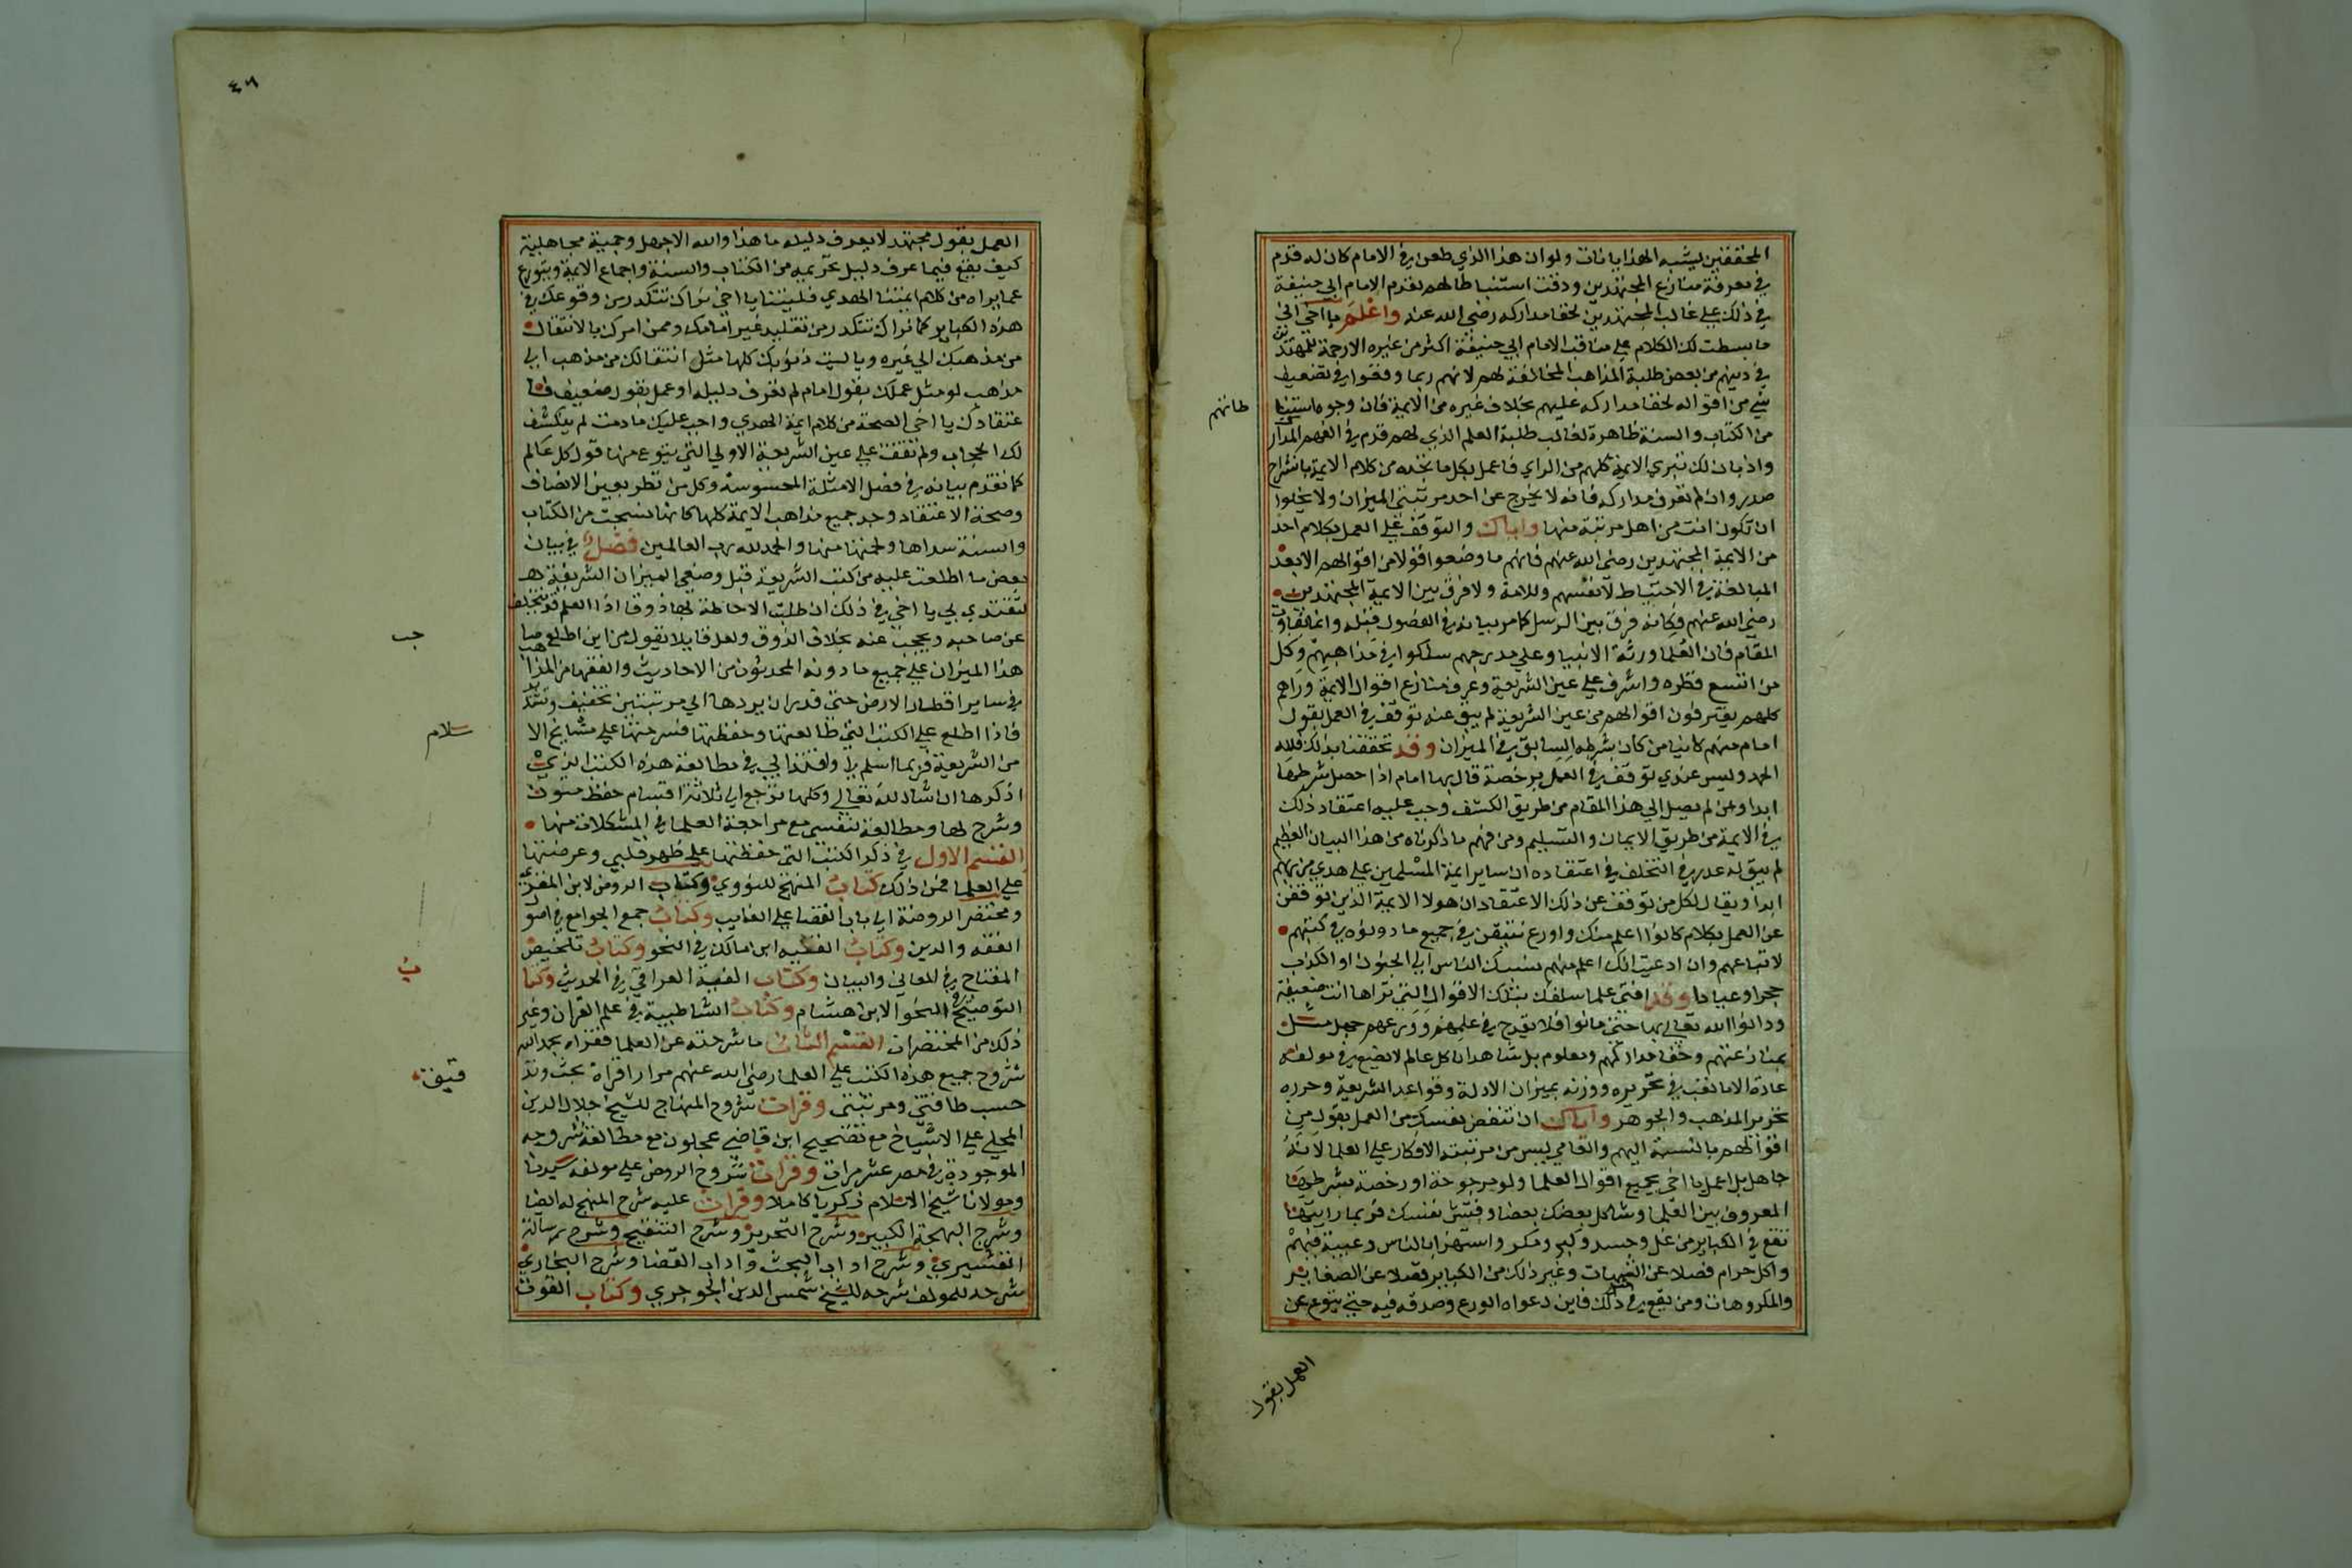 المحققين يشبه الهذايانات ولو ان هذا الذي طعن في الامام كان له قدم
في معرفة منازع المجتهدين ودقت استنباطا لهم لقدم الامام ابي حنيفة
في ذلك علي غالب المجتهدين لخفا مداركه رضي الله عنه واعلم يا اخي اني
ما بسطت لك الكلام علي مناقب الامام ابي حنيفة اكثر من غيره الا رحمة للمتهورين
في دينهم من بعض طلبة المذاهب المخالفة لهم لانهم ربما وقعوا في تضعيف
شي من اقواله لخفا مداركه عليهم بخلاف غيره من الائمة فان وجوه استنبا
طاتهم
من الكتاب والسنة ظاهرة لغالب طلبة العلم الذي لهم قدم في الفهم المدار
واذ بان لك تبري الايمة كلهم من الراي فاعمل بكل ما تجده من كلام الايمة بانشراح
صدر وان لم تعرف مداركه فانه لا يخرج عن احد مرتبتي الميزان ولا يخلوا
ان تكون انت من اهل مرتبة منها واياك والتوقف علي العمل بكلام احد
من الايمة المجتهدين رضي الله عنهم فانهم ما وضعوا قولا من اقوالهم الا بعد
المبالغة في الاحتياط لانفسهم وللامة ولا فرق بين الايمة المجتهدين
رضي الله عنهم فكانه فرق بين الرسل كما مر بيانه في الفصول قبله وانما تفاوت
المقام فان العلما ورثة الانبيا وعلي مدرجهم سلكوا في مذاهبهم وكل
من اتسع نظره واشرف علي عين الشريعة وعرف منازع اقوال الايمة وراهم
كلهم يغترفون اقوالهم من عين الشريعة لم يبق عنده توقف في العمل بقول
امام منهم كاينا من كان بشرطه السابق في الميزان وقد تحققنا بذلك فلله
الحمد وليس عندي توقف في العمل برخصة قال بها امام اذا حصل شرطها
ابدا ومن لم يصل الي هذا المقام من طريق الكشف وجب عليه اعتقاد ذلك
في الايمة من طريق الايمان والتسليم ومن فهم ما ذكرناه من هذا البيان العظيم
لم يبق له عذر في التخلف في اعتقاده ان ساير ايمة المسلمين علي هدي من ربهم
ابدا ويقال لكل من توقف عن ذلك الاعتقاد ان هولا الايمة الذين توقفن
عن العمل بكلام كانوا اعلم منك واورع بيقين في جميع ما دونوه في كتبهم
لاتباعهم وان ادعيت انك اعلم منهم نسبك الناس الي الجنون او الكذاب
جحرا وعيادا وقد افتي علما سلفك بتلك الاقوال التي تراها انت ضعيفة
ودانوا الله تعالي بها حتي ماتوا فلا يقدح في علمهم وورعهم جهل مثلك
بمنازعتهم وخفا مداركهم ومعلوم بل مشاهد ان كل عالم لا يضع في مولفه
عادة الا ما تعب في تحريره ووزنه بميزان الادلة وقواعد الشريعة وحرره
تحرير الذهب والجوهر واياك ان تنقض نفسك من العمل بقول من
اقوالهم بالنسبة اليهم والعامي ليس من مرتبته الانكار علي العلما لانه
جاهل بل اعمل يا اخي بجميع اقوال العلما ولو مرجوحة او رخصة بشرطها
المعروف بين العلما وشاكل بعضك بعضا وفتش نفسك فربما رايتها
تقع في الكباير من غل وحسد وكبر ومكر واستهزا بالناس وغيبة فيهم
واكل حرام فضلا عن الشبهات وغير ذلك من الكباير فضلا عن الصغاير
والمكروهات ومن يقع في ذلك فاين دعواه الورع وصدقه فيه حتي يتورع عن
العمل بقول
٤٦
العمل بقول مجتهد لا يعرف دليله ما هذا والله الا جهل وحمية مجاهلية
كيف يقع فيما عرف دليل تحريمه من الكتاب والسنة واجماع الايمة ويتورع
عما يراه من كلام ايمتنا الهدي فليتنا يا اخي نراك تتكدر من وقوعك في
هذه الكباير كما نراك تتكدر من تقليد غير امامك وممن امرك بالانتقال
من مذهبك الي غيره وياليت ذنوبك كلها مثل انتقالك من مذهب الي
مذهب او مثل عملك بقول امام لم تعرف دليله او عمل بقول ضعيف فا
عتقادك يا اخي الصحة من كلام ايمة الهدي واجب عليك ما دمت لم ينكشف
لك الحجاب ولم تقف علي عين الشريعة الاولي التي يتورع منها قول كل عالم
كما تقدم بيانه في فضل الامثلة المحسوسة وكل من نظر بعين الانصاف
وصحة الاعتقاد وجد جميع مذاهب الايمة كلها كانها نسجت من الكتاب
والسنة سداها ولحمتها منها والحمد لله رب العالمين فصل في بيان
بعض ما اطلعت عليه من كتب الشريعة قبل وضعي الميزان الشريفة هـ
لتقتدي بي يا اخي في ذلك ان طلبت الاحاطة بها ذوقا اذا العلم قد يتخلف
عن صاحبه ويحجب عنه بخلاف الذوق ولعل قايلا يقول من اين اطلع صا
حب
هذا الميزان علي جميع ما دونه المحدثون من الاحاديث والفقها من المذاهب
في ساير اقطار الارض حتي قدر ان يردها الي مرتبتين تخفيف وتشديد
فاذا اطلع علي الكتب التي طالعتها وحفظتها وشرحتها علي مشايخ الا
سلام
من الشريعة فربما اسلم لي واقتدا بي في مطالعة هذه الكتب الذي
اذكرها ان شا الله تعالي وكلها ترجع الي ثلاثة اقسام حفظ متون
وشرح لها ومطالعة لنفسي مع مراجعة العلما في المشكلات منها
القسم الاول في ذكر الكتب التي حفظتها علي ظهر قلبي وعرضتها
علي العلما فمن ذلك كتاب المنهج للنووي وكتاب الروض لابن المقري
ومختصر الروضة الي باب القضا علي الغايب وكتاب جمع الجوامع في اصول
الفقه والدين وكتاب الفيه ابن مالك في النحو وكتاب تلخيص
المفتاح في المعاني والبيان وكتاب الفية العراقي في الحديث وكتا
ب
التوضيح في النحو لابن هشام وكتاب الشاطبية في علم القران وغير
ذلك من المختصرات القسم الثاني ما شرحته عن العلما فقراه بحمد الله
شروح جميع هذه الكتب علي العلما رضي الله عنهم مرارا قراة بحث وتد
قيق
حسب طاقتي ومرتبتي وقرات شروح المنهاج للشيخ جلال الدين
المحلي علي الاشياخ مع تصحيح ابن قاضي عجلون مع مطالعة شروحه
الموجودة في مصر عشر مرات وقرات شروح الروض علي مولفه سيدنا
ومولانا شيخ الاسلام زكريا كاملا وقرات عليه شرح المنهج له ايضا
وشرح البهجة الكبير وشرح التحرير وشرح التنقيح وشرح رسالة
القشيري وشرح اداب البحث واداب القضا وشرح البخاري
شرحه للمولف شرحه للشيخ شمس الدين الجوجري وكتاب القوت